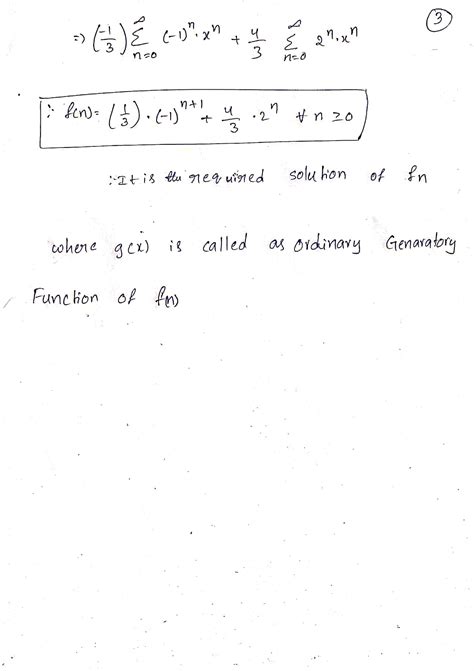 ③
⇒ (-1/3) ∑_{n=0}^{∞} (-1)^n · x^n + 4/3 ∑_{n=0}^{∞} 2^n · x^n
∴ f(n) = (1/3) · (-1)^{n+1} + 4/3 · 2^n ∀ n ≥ 0
∴ It is the required solution of fn
where g(x) is called as ordinary Genaratory
Function of f(n)